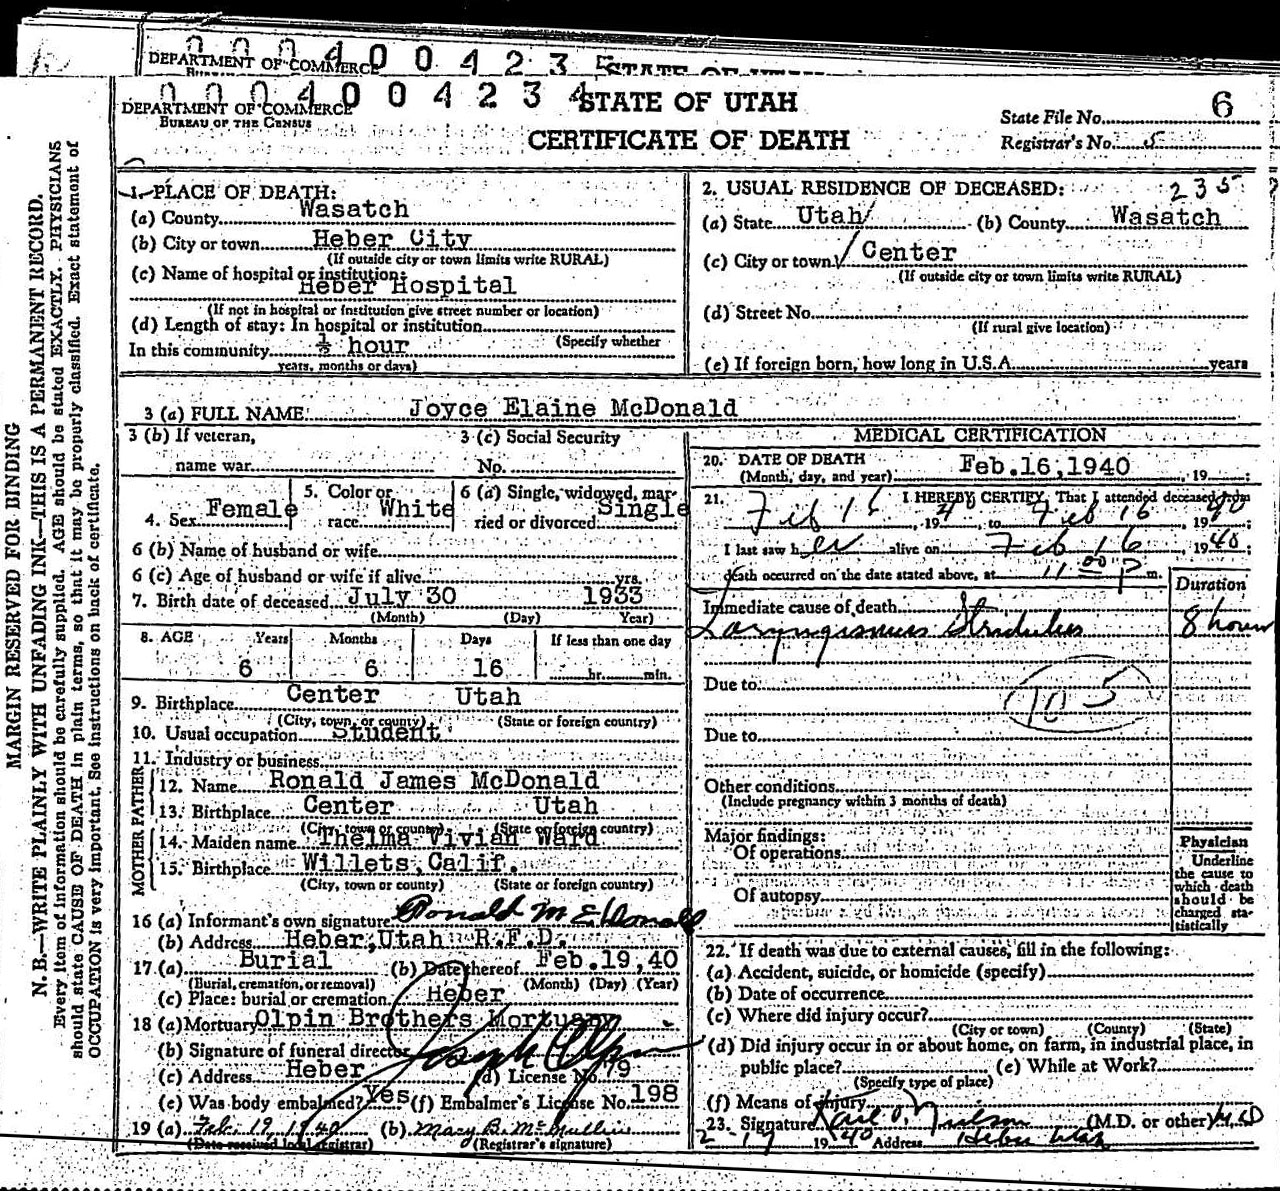 DEPARTMENT OF COMMERCE 0 0 0 4 0 0 4 2 3 5 STATE OF UTAH
0 0 0 4 0 0 4 2 3 4
DEPARTMENT OF COMMERCE
BUREAU OF THE CENSUS
STATE OF UTAH
CERTIFICATE OF DEATH
State File No. 6
Registrar's No. 5
MARGIN RESERVED FOR BINDING
N. B.—WRITE PLAINLY WITH UNFADING INK—THIS IS A PERMANENT RECORD.
Every item of information should be carefully supplied. AGE should be stated EXACTLY. PHYSICIANS
should state CAUSE OF DEATH in plain terms, so that it may be properly classified. Exact statement of
OCCUPATION is very important. See instructions on back of certificate.
1. PLACE OF DEATH:
(a) County Wasatch
(b) City or town Heber City
(If outside city or town limits write RURAL)
(c) Name of hospital or institution:
Heber Hospital
(If not in hospital or institution give street number or location)
(d) Length of stay: In hospital or institution
(Specify whether
In this community ½ hour
years, months or days)
2. USUAL RESIDENCE OF DECEASED: 235
(a) State Utah (b) County Wasatch
(c) City or town Center
(If outside city or town limits write RURAL)
(d) Street No.
(If rural give location)
(e) If foreign born, how long in U.S.A. years
3 (a) FULL NAME Joyce Elaine McDonald
3 (b) If veteran,
name war
3 (c) Social Security
No.
4. Sex Female
5. Color or
race White
6 (a) Single, widowed, mar-
ried or divorced Single
6 (b) Name of husband or wife
6 (c) Age of husband or wife if alive yrs.
7. Birth date of deceased July 30 1933
(Month) (Day) Year)
8. AGE Years Months Days If less than one day
6 6 16 hr. min.
9. Birthplace Center Utah
(City, town, or county) (State or foreign country)
10. Usual occupation Student
11. Industry or business
FATHER
12. Name Ronald James McDonald
13. Birthplace Center Utah
(City, town or county) (State or foreign country)
MOTHER
14. Maiden name Thelma Vivian Ward
15. Birthplace Willets, Calif.
(City, town or county) (State or foreign country)
16 (a) Informant's own signature Ronald McDonald
(b) Address Heber, Utah R.F.D.
17 (a) Burial (b) Date thereof Feb.19,40
(Burial, cremation, or removal) (Month) (Day) (Year)
(c) Place: burial or cremation Heber
18 (a) Mortuary Olpin Brothers Mortuary
(b) Signature of funeral director Joseph Olpin
(c) Address Heber (d) License No. 79
(e) Was body embalmed? Yes (f) Embalmer's License No. 198
19 (a) Feb. 19, 1940 (b) Mary B. McMullin
(Date received local registrar) (Registrar's signature)
MEDICAL CERTIFICATION
20. DATE OF DEATH
(Month, day, and year) Feb.16,1940 , 19 ;
21. I HEREBY CERTIFY, That I attended deceased from
Feb 16, 1940, to Feb 16, 1940;
I last saw her alive on Feb 16, 1940;
death occurred on the date stated above, at 11 00 P m.
Duration
Immediate cause of death
Laryngismus Stridulus 8 hours
Due to
105
Due to
Other conditions
(Include pregnancy within 3 months of death)
Major findings:
Of operations
Of autopsy
Physician
Underline
the cause to
which death
should be
charged sta-
tistically
22. If death was due to external causes, fill in the following:
(a) Accident, suicide, or homicide (specify)
(b) Date of occurrence
(c) Where did injury occur?
(City or town) (County) (State)
(d) Did injury occur in or about home, on farm, in industrial place, in
public place? (e) While at Work?
(Specify type of place)
(f) Means of injury
23. Signature (M.D. or other) M.D
2-19 1940 Address Heber Utah